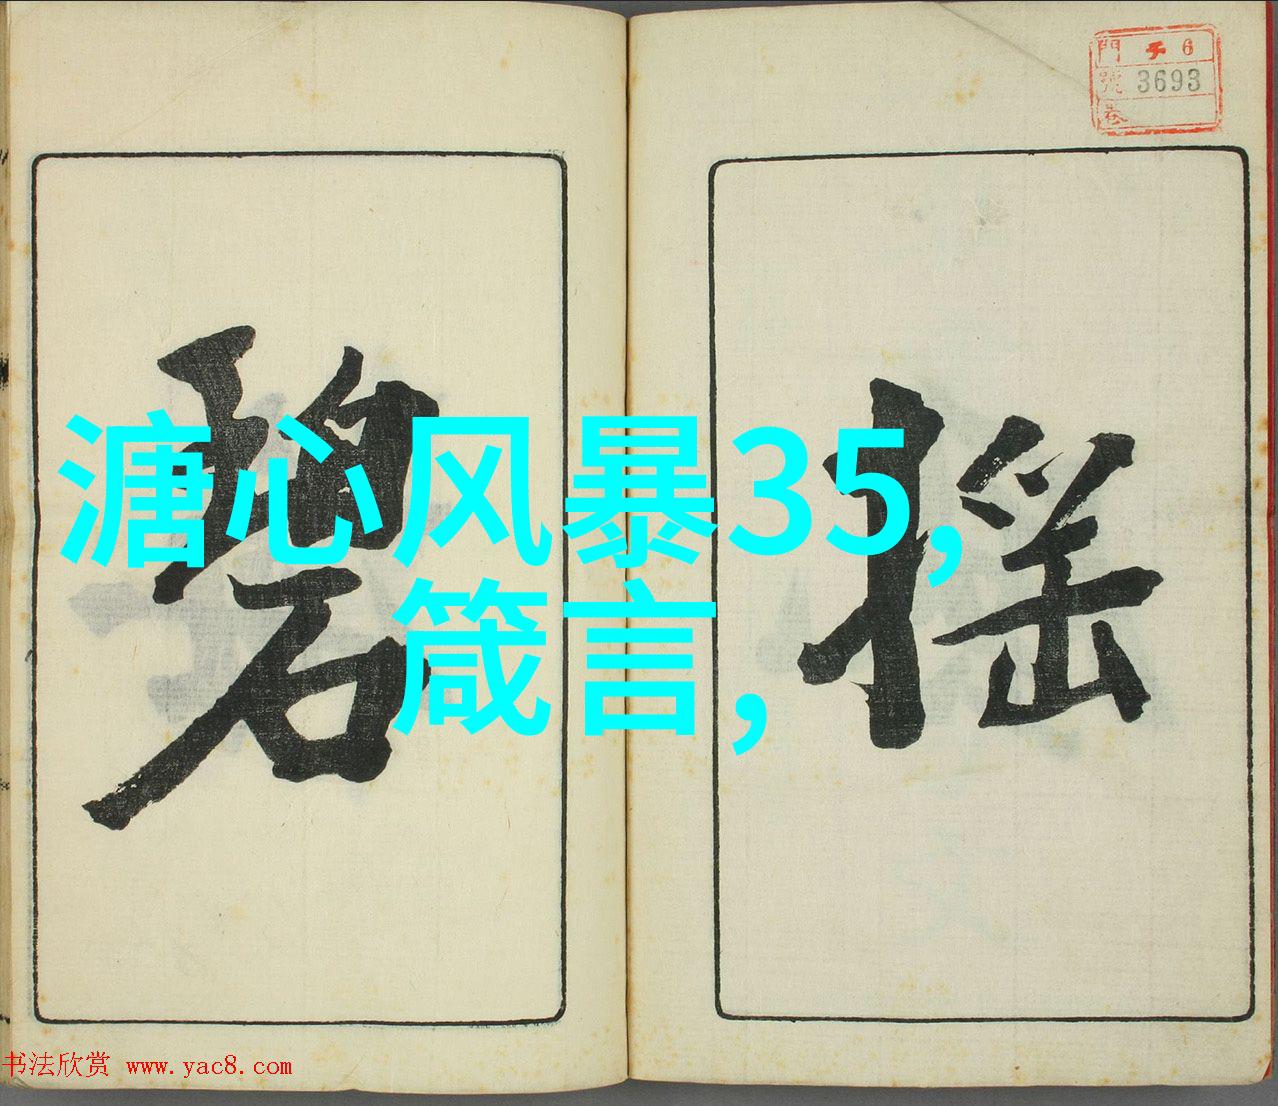 門 子 6
號 3693
卷
搖
碧
溏心风暴35,
箴言,
书法欣赏 www.yac8.com